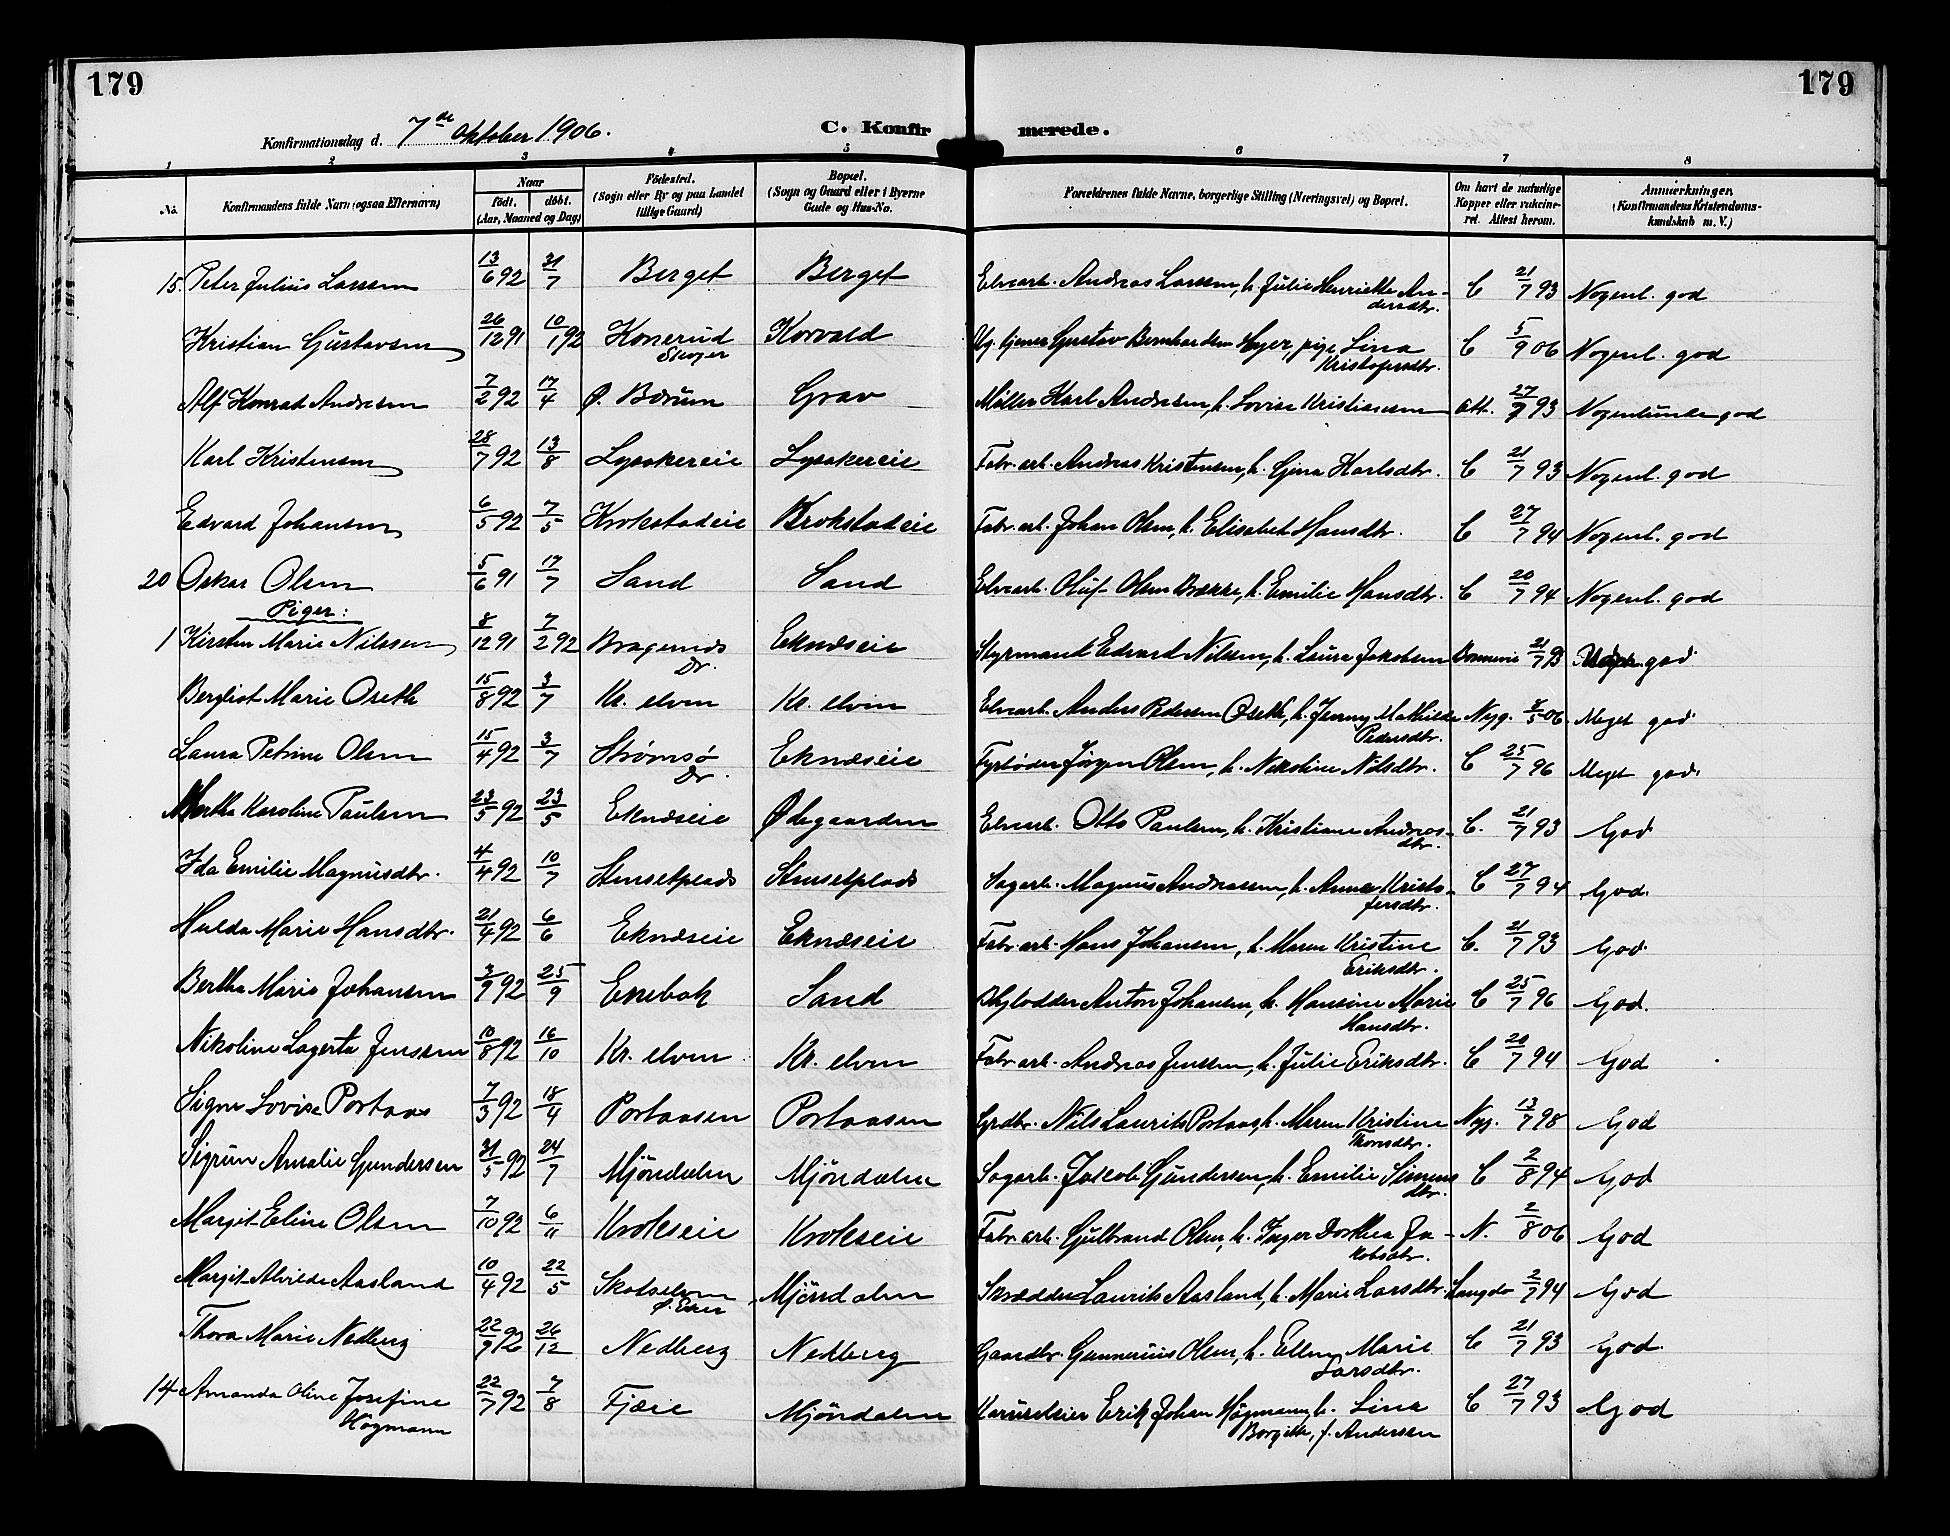 179
179
Konfirmationsdag d. 7de Oktober 1906.
C. Konfirmerede.
1 2 3 4 5 6 7 8
No. Konfirmandens fulde Navn (ogsaa Efternavn) Naar født. døbt. (Aar, Maaned og Dag) Fødested. (Sogn eller By og paa Landet tillige Gaard) Bopæl. (Sogn og Gaard eller i Byerne Gade og Hus-No. Forældrenes fulde Navne, borgerlige Stilling (Næringsvei) og Bopæl. Om havt de naturlige Kopper eller vakcineret. Attest herom. Anmærkninger. (Konfirmandens Kristendomskundskab m. V.)
15. Peter Julius Larsen 13/6 92 31/7 Berget Berget Elvearb. Andreas Larssen, h. Julie Henriette Andersdtr. C 21/7 93 Nogenl. god
Kristian Gustavsen 26/12 91 10/1 92 Konerud Skoger Korvald Ug. tjener Gustav Bernhardsen Hyer, pige Lina Kristofersdtr. C 5/9 06 Nogenl. god
Alf Konrad Andresen 7/2 92 17/4 Ø. Bærum Grav Møller Karl Andresen, h. Lovise Kristiansen att. 27/7 93 Nogenlunde god
Karl Kristensen 28/7 92 13/8 Lysakereie Lysakereie Fabr. arb. Andreas Kristensen, h. Gina Karlsdtr. C 21/7 93 Nogenl. god
Edvard Johansen 6/5 92 7/5 Krokstadeie Krokstadeie Fabr. arb. Johan Olsen, h. Elisabet Hansdtr. C 27/7 94 Nogenl. god
20 Oskar Olsen 5/6 91 17/7 Sand Sand Elvearb. Oluf Olsen Bække, h. Emilie Hansdtr. C 20/7 94 Nogenl. god
Piger:
1 Kirsten Marie Nilssen 8/12 91 7/2 92 Bragernes Dr. Eknæseie Styrmand Edvard Nilssen, h. Laura Jakobsen 21/7 93 Meget god
Bergliot Marie Oseth 15/8 92 3/7 Kr. elven Kr. elven Elvearb. Anders Pedersen Oseth, h. Jenny Mathilde Pedersdtr. Nyg. 8/5 06 Meget god
Laura Petrine Olsen 15/4 92 3/7 Strømsø Dr. Eknæseie Fyrbøder Jørgen Olsen, h. Nikoline Nilsdtr. C 25/7 96 Meget god.
Martha Karoline Paulsen 23/5 92 23/5 Eknæseie Ødegaarden Elvearb. Otto Paulsen, h. Kristiane Andreasdtr. C. 21/7 93 God
Ida Emilie Magnusdtr. 4/4 92 10/7 Stensetplads Stensetplads Sagarb. Magnus Andreassen, h. Anna Kristofersdtr. C 27/7 94 God.
Hulda Marie Hansdtr. 21/4 92 6/6 Eknæseie Eknæseie Fabr. arb. Hans Johansen, h. Maren Kristine Eriksdtr. C. 21/7 93 God
Bertha Marie Johansen 3/9 92 25/9 Enebak Sand Anton Johansen, h. Hansine Marie Hansdtr. C 25/7 96 God.
Nikoline Lagerta Jenssen 10/8 92 16/10 Kr. elven Kr. elven Fabr. arb. Andreas Jenssen, h. Julie Eriksdtr. C 20/7 94 God
Signe Lovise Portaas 7/3 92 18/4 Portaasen Portaasen Grdbr. Nils Laurits Portaas, h. Maren Kristine Thorsdtr. Nyg. 13/7 98 God
Sigrun Amalie Gundersen 31/5 92 24/7 Mjøndalen Mjøndalen Sagarb. Jakob Gundersen, h. Emilie Simensdtr. C 2/8 94 God
Margit Eline Olsen 7/10 92 6/11 Krokseie Krokseie Fabr. arb. Gulbrand Olsen, h. Inger Dorthea Jakobsdtr. N. 2/8 06 God
Margit Alvilde Aasland 10/4 92 22/5 Skotselven Ø. Eker Mjøndalen Skrædder Laurits Aasland, h. Marie Larsdtr. 2/7 94 God
Thora Marie Nedberg 22/9 92 26/12 Nedberg Nedberg Gaardbr. Gunnerius Olsen, h. Ellen Marie Larsdtr. C 21/7 93 God.
14 Amanda Oline Josefine Høgmann 22/7 92 7/8 Fjæie Mjøndalen Karuseleier Erik Johan Høgmann, h. Lina Borgitte, f. Andersen C 27/7 93 God